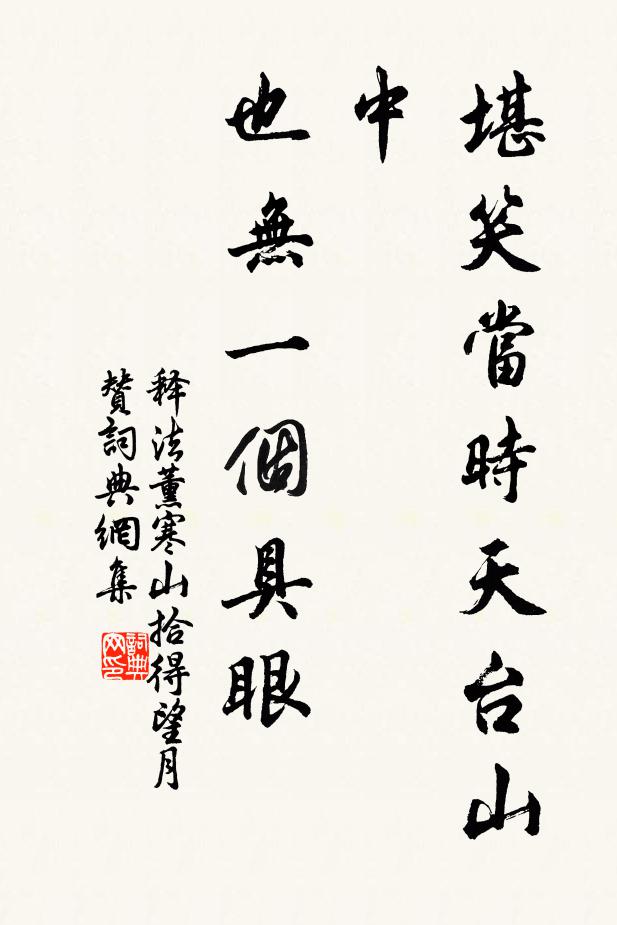 堪笑當時天台山
中
也無一個具眼
释法薰寒山拾得望月
賛詞典網集
詞典
网印